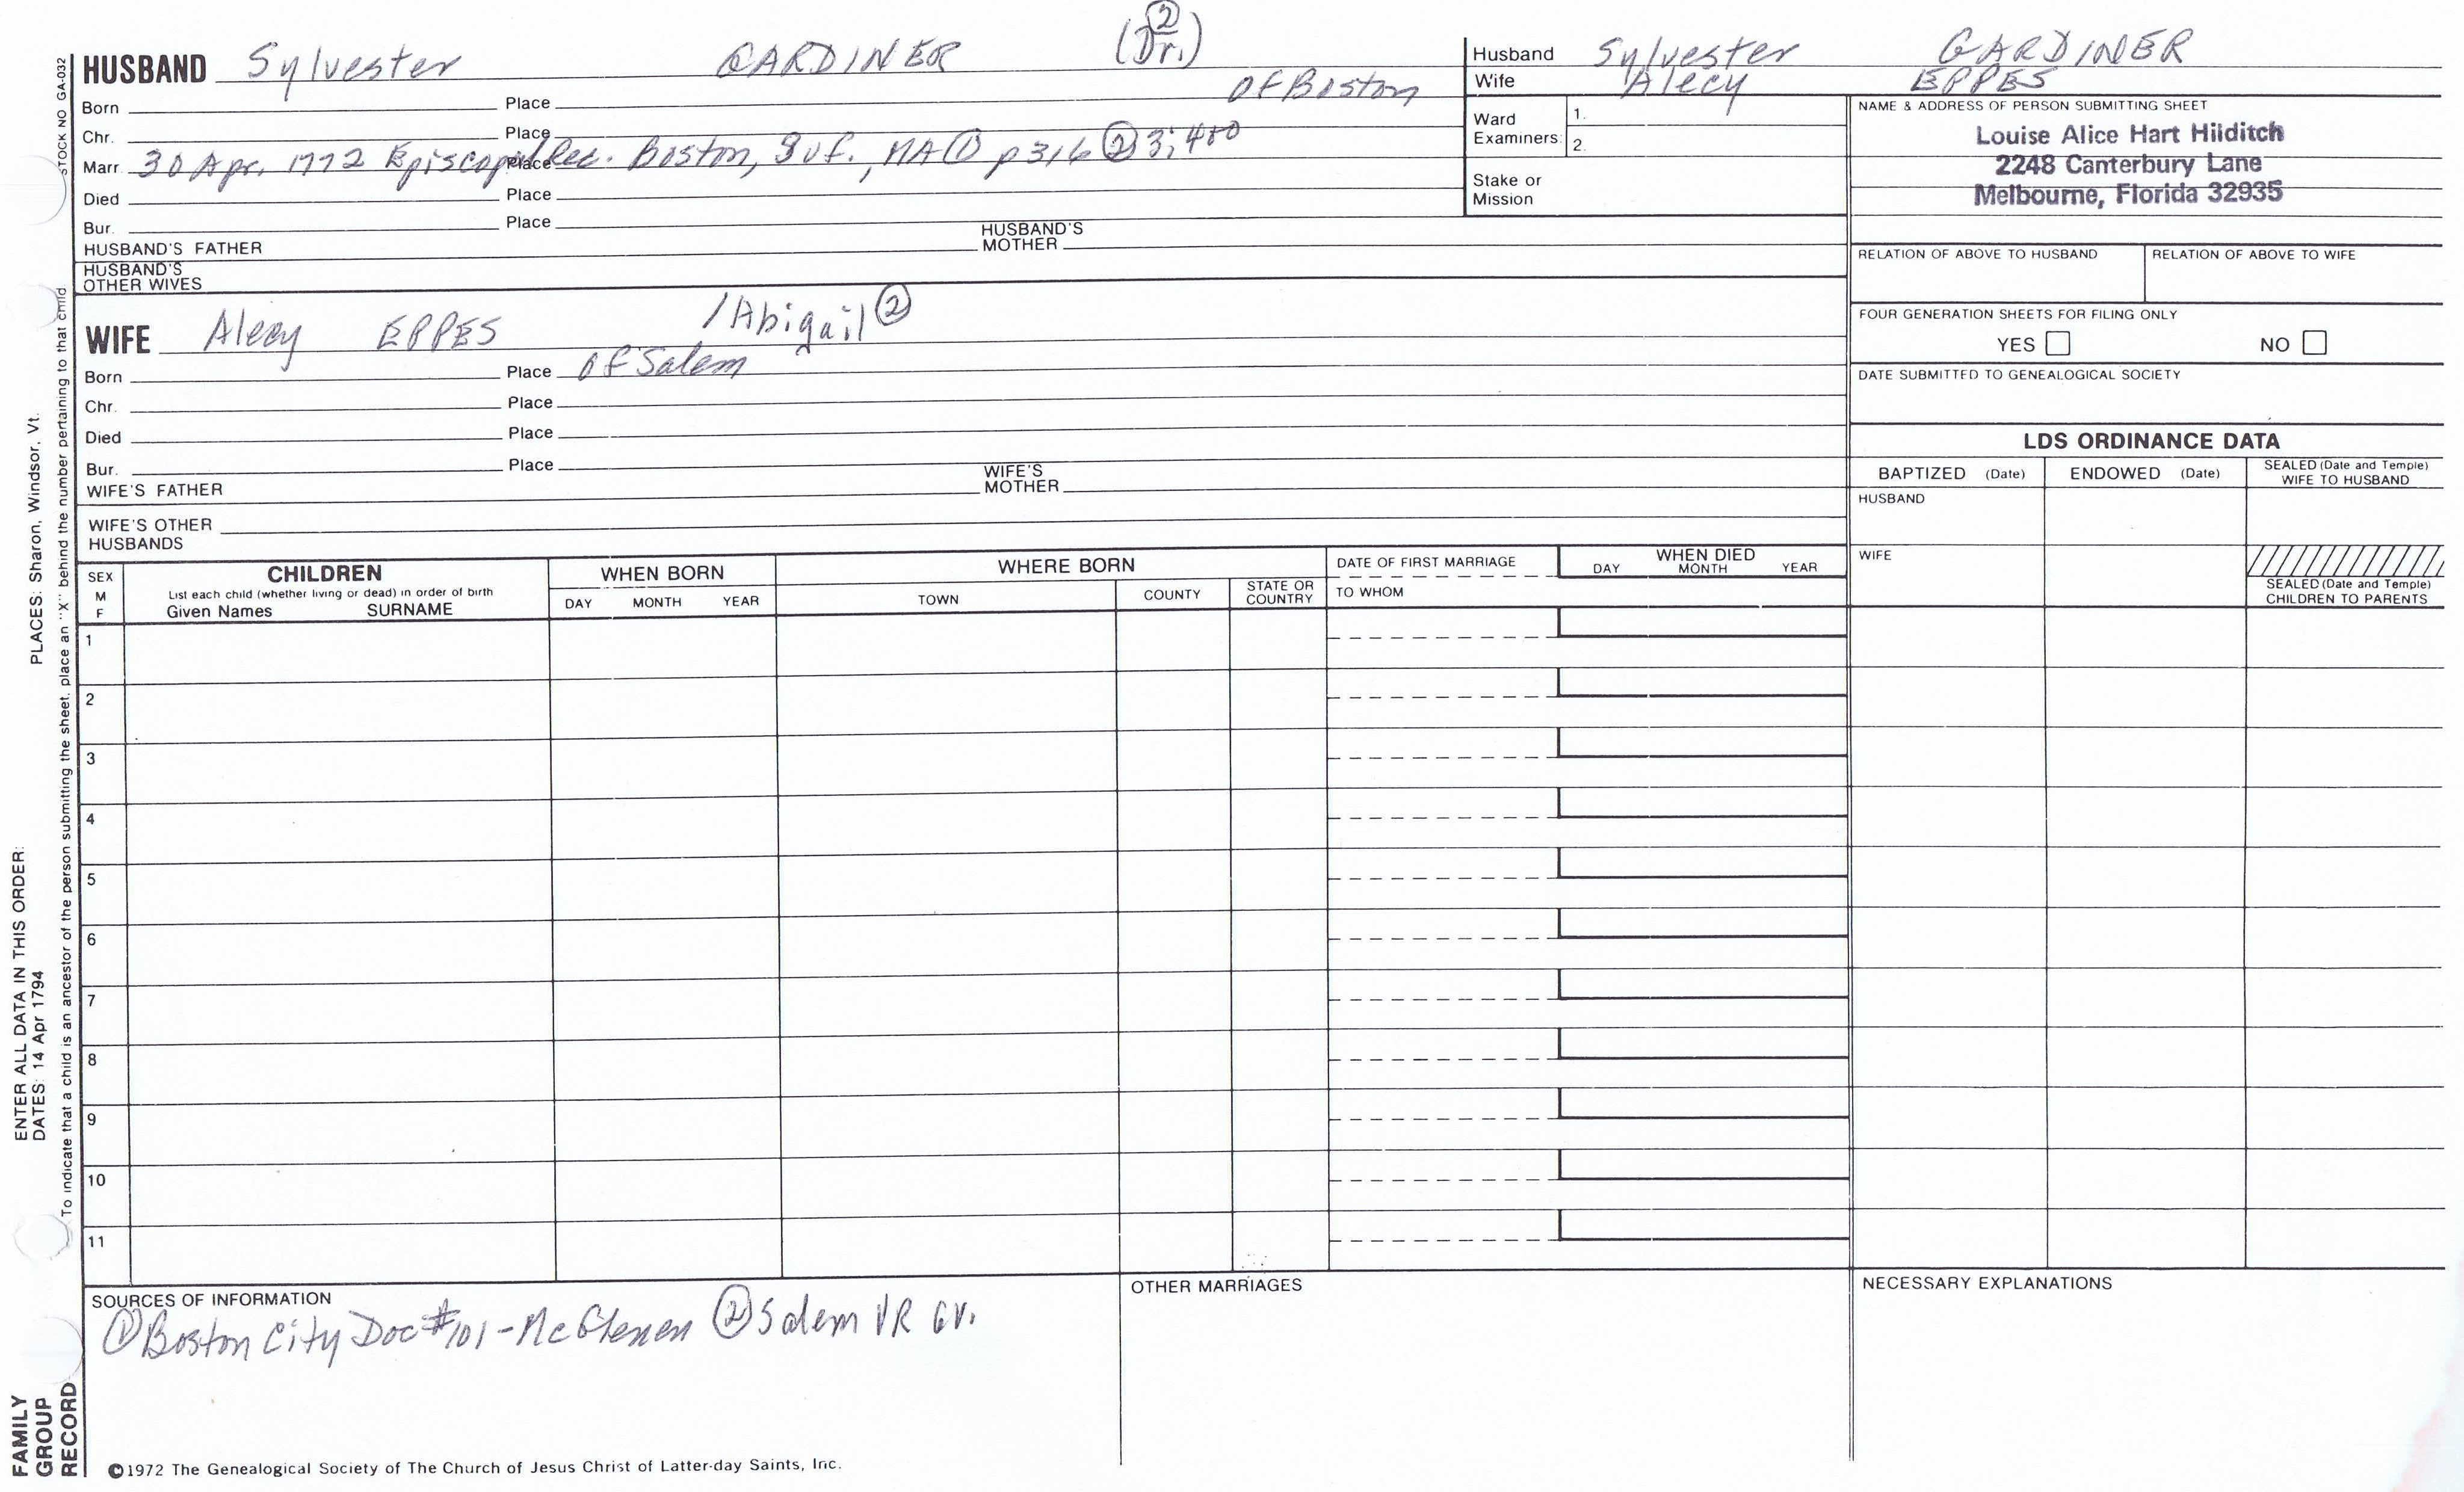 (2)
HUSBAND Sylvester GARDINER (Dr.)
Born Place of Boston
Chr. Place
Marr. 30 Apr. 1772 Episcopal Rec. Place Boston, Suf., MA (1) p 316 (2) 3; 400
Died Place
Bur. Place
HUSBAND'S FATHER HUSBAND'S MOTHER
HUSBAND'S OTHER WIVES
WIFE Alecy EPPES /Abigail (2)
Born Place of Salem
Chr. Place
Died Place
Bur. Place
WIFE'S FATHER WIFE'S MOTHER
WIFE'S OTHER HUSBANDS
Husband Sylvester GARDINER
Wife Alecy EPPES
Ward Examiners: 1.
2.
Stake or Mission
NAME & ADDRESS OF PERSON SUBMITTING SHEET
Louise Alice Hart Hilditch
2248 Canterbury Lane
Melbourne, Florida 32935
RELATION OF ABOVE TO HUSBAND RELATION OF ABOVE TO WIFE
FOUR GENERATION SHEETS FOR FILING ONLY
YES NO
DATE SUBMITTED TO GENEALOGICAL SOCIETY
LDS ORDINANCE DATA
BAPTIZED (Date) ENDOWED (Date) SEALED (Date and Temple) WIFE TO HUSBAND
HUSBAND
WIFE
SEALED (Date and Temple) CHILDREN TO PARENTS
SEX M F
CHILDREN
List each child (whether living or dead) in order of birth
Given Names SURNAME
WHEN BORN
DAY MONTH YEAR
WHERE BORN
TOWN COUNTY STATE OR COUNTRY
DATE OF FIRST MARRIAGE
TO WHOM
WHEN DIED
DAY MONTH YEAR
1
2
3
4
5
6
7
8
9
10
11
SOURCES OF INFORMATION
(1) Boston City Doc #101 - McGlenen (2) Salem VR 6V.
OTHER MARRIAGES
NECESSARY EXPLANATIONS
©1972 The Genealogical Society of The Church of Jesus Christ of Latter-day Saints, Inc.
STOCK NO GA-032
To indicate that a child is an ancestor of the person submitting the sheet, place an "X" behind the number pertaining to that child
ENTER ALL DATA IN THIS ORDER:
DATES: 14 Apr 1794
PLACES: Sharon, Windsor, Vt.
FAMILY
GROUP
RECORD